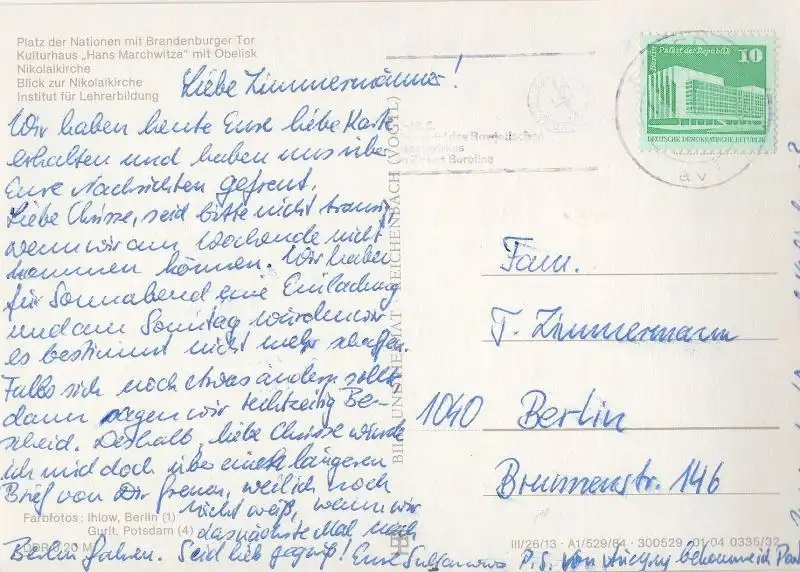 Platz der Nationen mit Brandenburger Tor
Kulturhaus „Hans Marchwitza“ mit Obelisk
Nikolaikirche
Blick zur Nikolaikirche
Institut für Lehrerbildung
Liebe Zimmermänner!
Wir haben heute Eure liebe Karte
erhalten und haben uns über
Eure Nachrichten gefreut.
Liebe Chrisse, seid bitte nicht traurig,
wenn wir am Wochende nicht
kommen können. Wir haben
für Sonnabend eine Einladung
und am Sonntag würden wir
es bestimmt nicht mehr schaffen.
Falls sich noch etwas ändern sollte
dann sagen wir rechtzeitig Be-
scheid. Deshalb, liebe Chrisse würde
ich mich doch über einen längeren
Brief von Dir freuen, weil ich noch
nicht weiß, wann wir
das nächste Mal nach
Berlin fahren. Seid lieb gegrüßt! Eure
P.S. Von bekomme ich
Farbfotos: Ihlow, Berlin (1)
Gurlt, Potsdam (4)
DDR 0,20 M
BILD UND HEIMAT REICHENBACH (VOGTL)
Zirkus Berolina
Berlin Palast der Republik
10
DEUTSCHE DEMOKRATISCHE REPUBLIK
Fam.
T. Zimmermann
1040 Berlin
Brunnenstr. 146
III/26/13 · A1/529/84 · 300529 01 04 0335/32